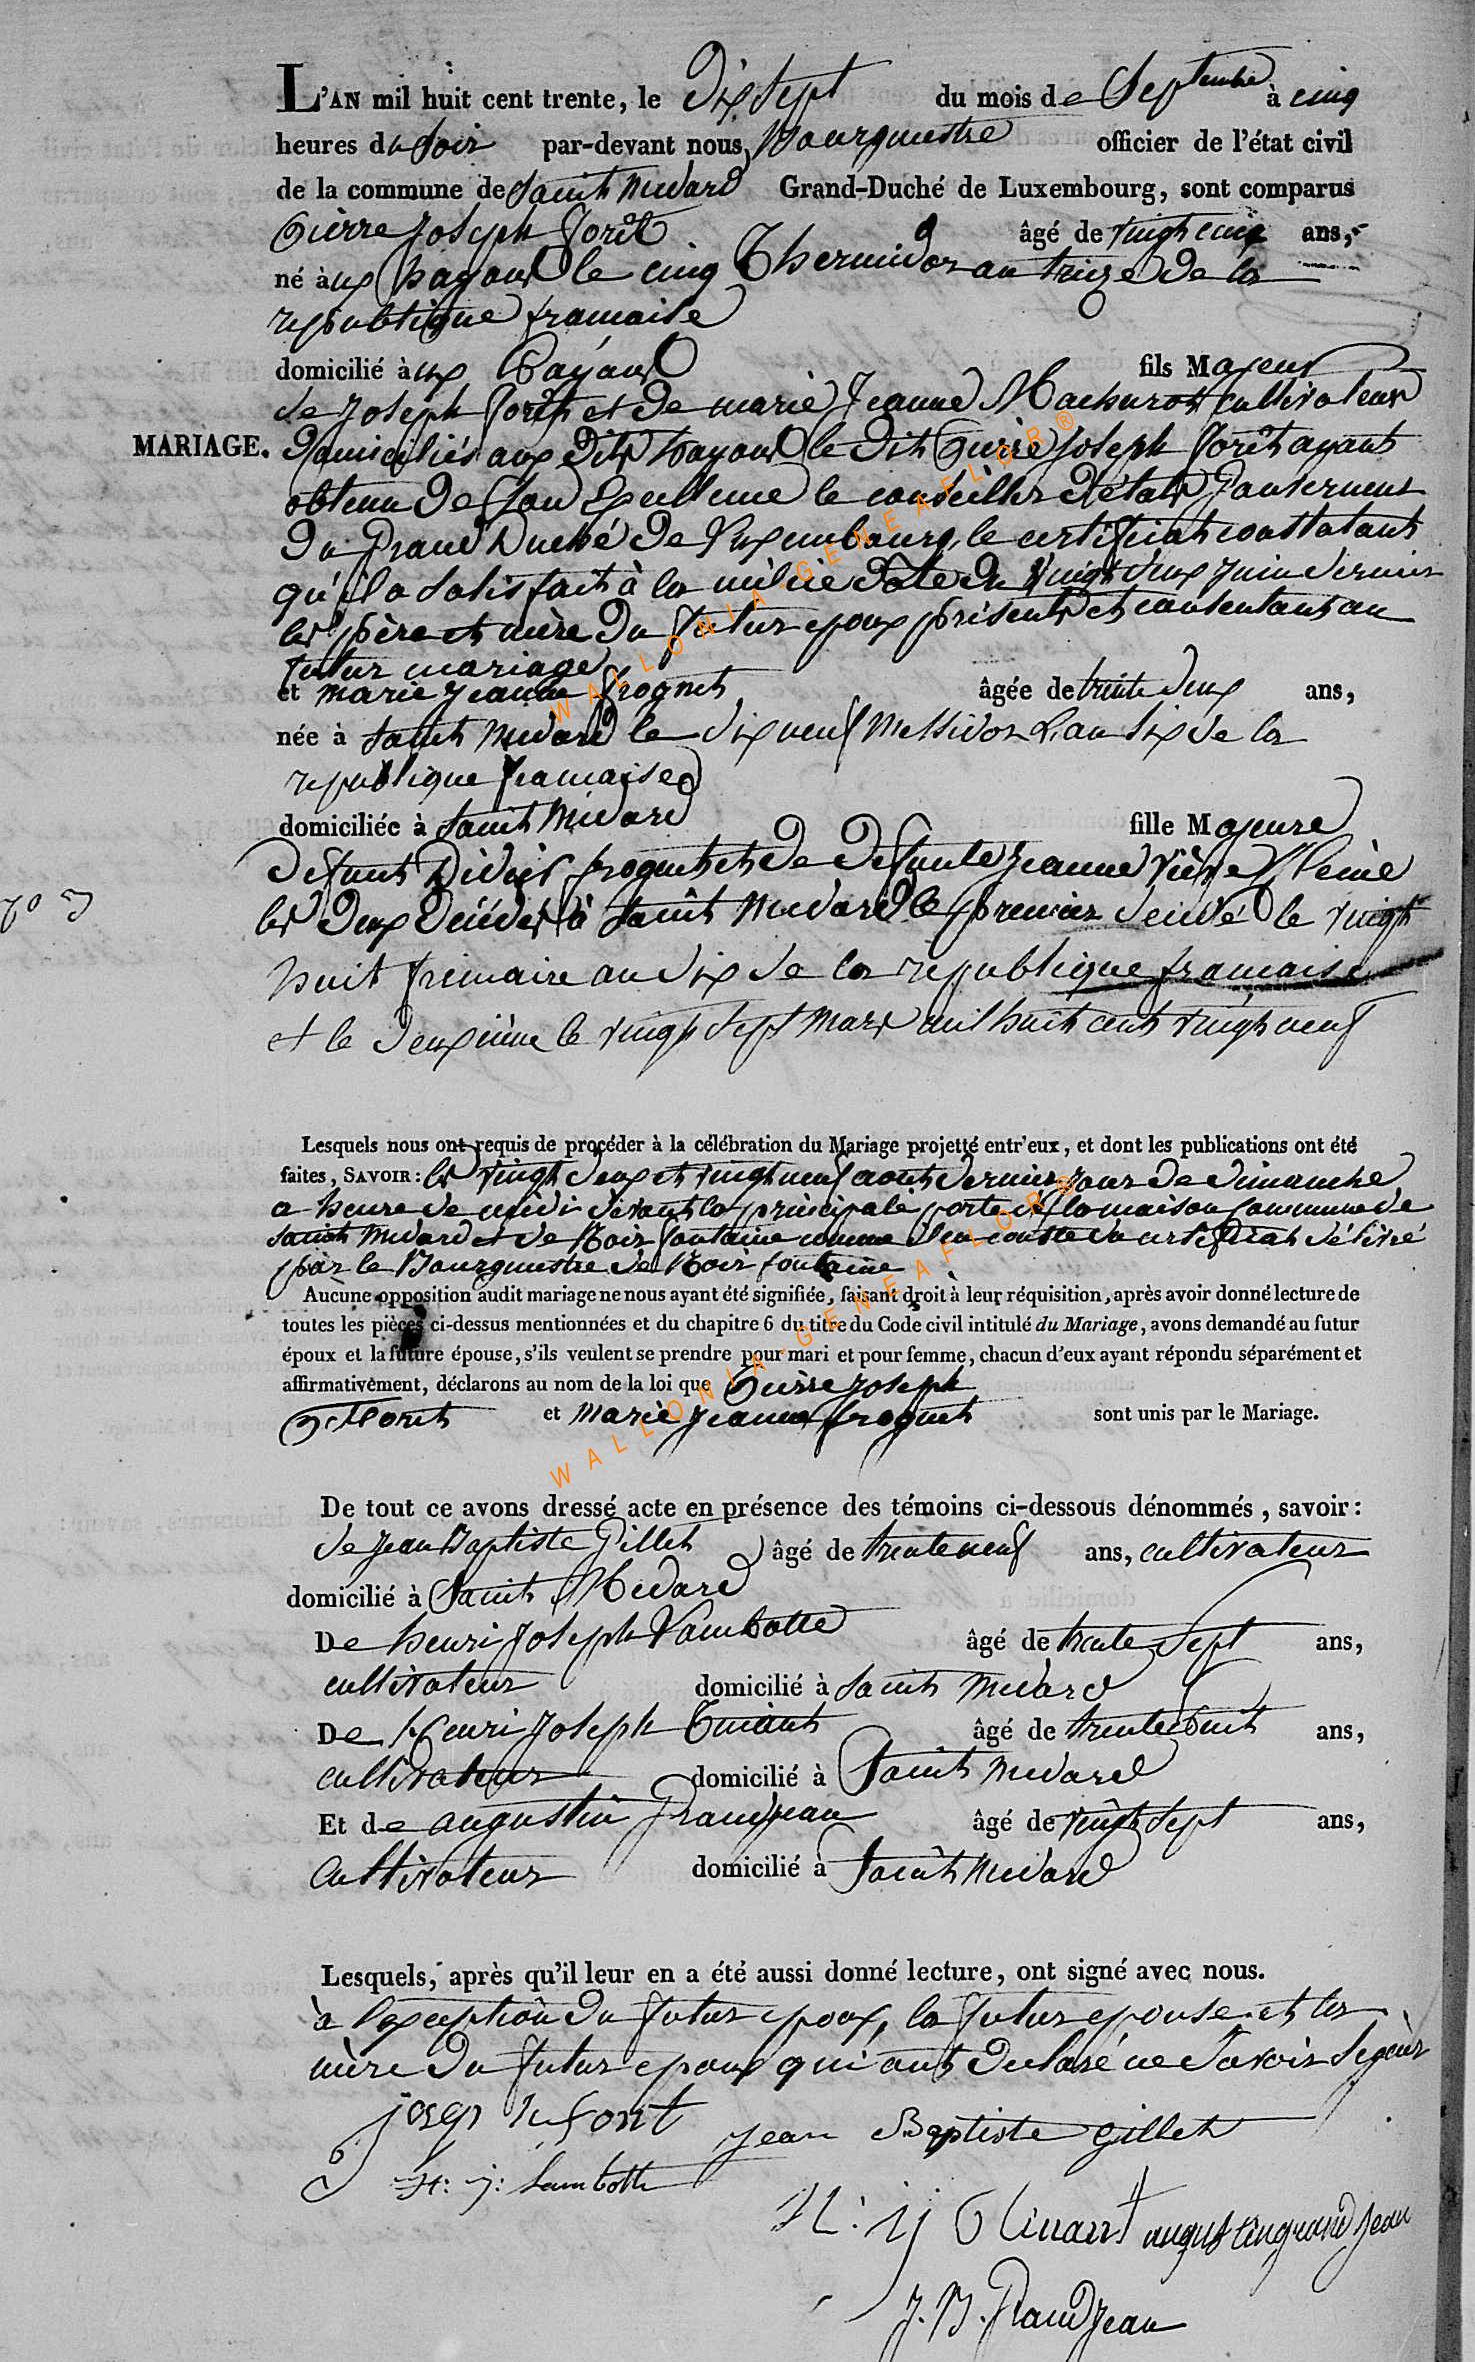 L'AN mil huit cent trente, le Dix Sept du mois de Septembre à cinq
heures du Soir par-devant nous, Bourguestre officier de l'état civil
de la commune de Saint Medard Grand-Duché de Luxembourg, sont comparus
Pierre Joseph Forêt âgé de vingt cinq ans,
né àux hayons le cinq Thermidor an treize de la
republique francaise
domicilié àux hayons fils Majeur
de Joseph Forêt et de marie Jeanne Machurot cultivateurs
MARIAGE. domiciliés aux dits hayons le dit Pierre Joseph Forêt ayant
obtenu de Son Excellence le conseiller d'état Gouverneur
du Grand Duché de Luxembourg, le certificat constatant
qu'il a satisfait à la milice date du vingt deux juin dernier
les père et mère du futur epoux présents et consentant au
futur mariage
et marie jeanne frognet âgée de trente deux ans,
née à Saint Medard le dix neuf Messidor L'an six de la
republique francaise
domiciliée à Saint Medard fille Majeure
defunt Didier frognet et de defunte jeanne
N° 3
les deux décédés à Saint Medard le premier décédé le vingt
huit frimaire an dix de la republique francaise
et le deuxième le vingt sept Mars mil huit cent vingt neuf
Lesquels nous ont requis de procéder à la célébration du Mariage projetté entr'eux, et dont les publications ont été
faites, SAVOIR: les vingt deux et vingt neuf aout dernier jour de dimanche
a heure de midi devant la principale porte de la maison Commune de
Saint Medard et de Noirfontaine comme il en conste du certificat délivré
par le Bourguestre de Noirfontaine
Aucune opposition audit mariage ne nous ayant été signifiée, faisant droit à leur réquisition, après avoir donné lecture de
toutes les pièces ci-dessus mentionnées et du chapitre 6 du titre du Code civil intitulé du Mariage, avons demandé au futur
époux et la future épouse, s'ils veulent se prendre pour mari et pour femme, chacun d'eux ayant répondu séparément et
affirmativement, déclarons au nom de la loi que Pierre Joseph
Foret et marie jeanne frognet sont unis par le Mariage.
De tout ce avons dressé acte en présence des témoins ci-dessous dénommés, savoir:
de jean Baptiste Gillet âgé de trente neuf ans, cultivateur
domicilié à Saint Medard
De henri Joseph Lambotte âgé de trente Sept ans,
cultivateur domicilié à Saint Medard
De Henri Joseph âgé de trente huit ans,
cultivateur domicilié à Saint Medard
Et de augustin Grandjean âgé de vingt sept ans,
Cultivateur domicilié à Saint Medard
Lesquels, après qu'il leur en a été aussi donné lecture, ont signé avec nous.
à l'exception du futur epoux, la futur epouse et la
mère du futur epoux qui ont declaré ne Savoir Signer
jean Baptiste Gillet
H: j: Lambotte
augustin grand jean
J. B. Grandjean
WALLONIA-GENEAFLOR®
WALLONIA-GENEAFLOR®